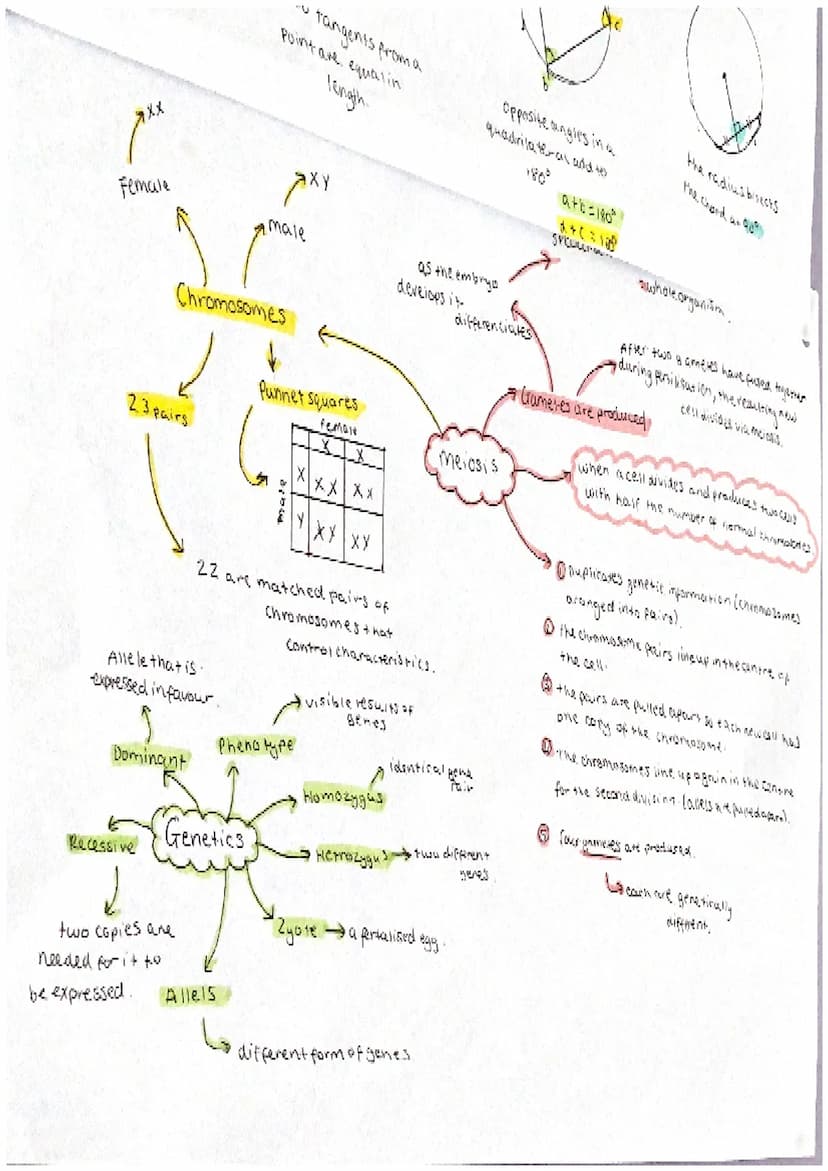 tangents from a
point are equal in
length.
c
b
opposite angles in a
quadrilateral add to
180°
a+b=180°
d+c=180°
the radius bisects
the chord at 90°
XX
Female
XY
male
Chromosomes
23 pairs
Punnet squares
female
X X
male
X XX XX
Y XY XY
22 are matched pairs of
chromosomes that
control characteristics.
as the embryo
develops it
differenciates
whole organism.
Gametes are produced
After two gametes have fused together
during fertilisation, the resulting new
cell divides via meiosis.
meiosis
when a cell divides and produces two cells
with half the number of normal chromosomes.
① Duplicates genetic information (chromosomes
aranged into pairs).
② the chromosome pairs line up in the centre of
the cell.
③ the pairs are pulled apart so each new cell has
one copy of the chromosome.
④ The chromosomes line up again in the centre
for the second division (allels are pulled apart).
⑤ four gametes are produced.
each are genetically
different.
Allele that is
expressed in favour.
Dominant
Phenotype
visible results of
genes
Homozygus
identical gene
pair
Genetics
Recessive
Hetrozygus
two different
genes
two copies are
needed for it to
be expressed.
Zyote
a fertalised egg.
Allels
different form of genes